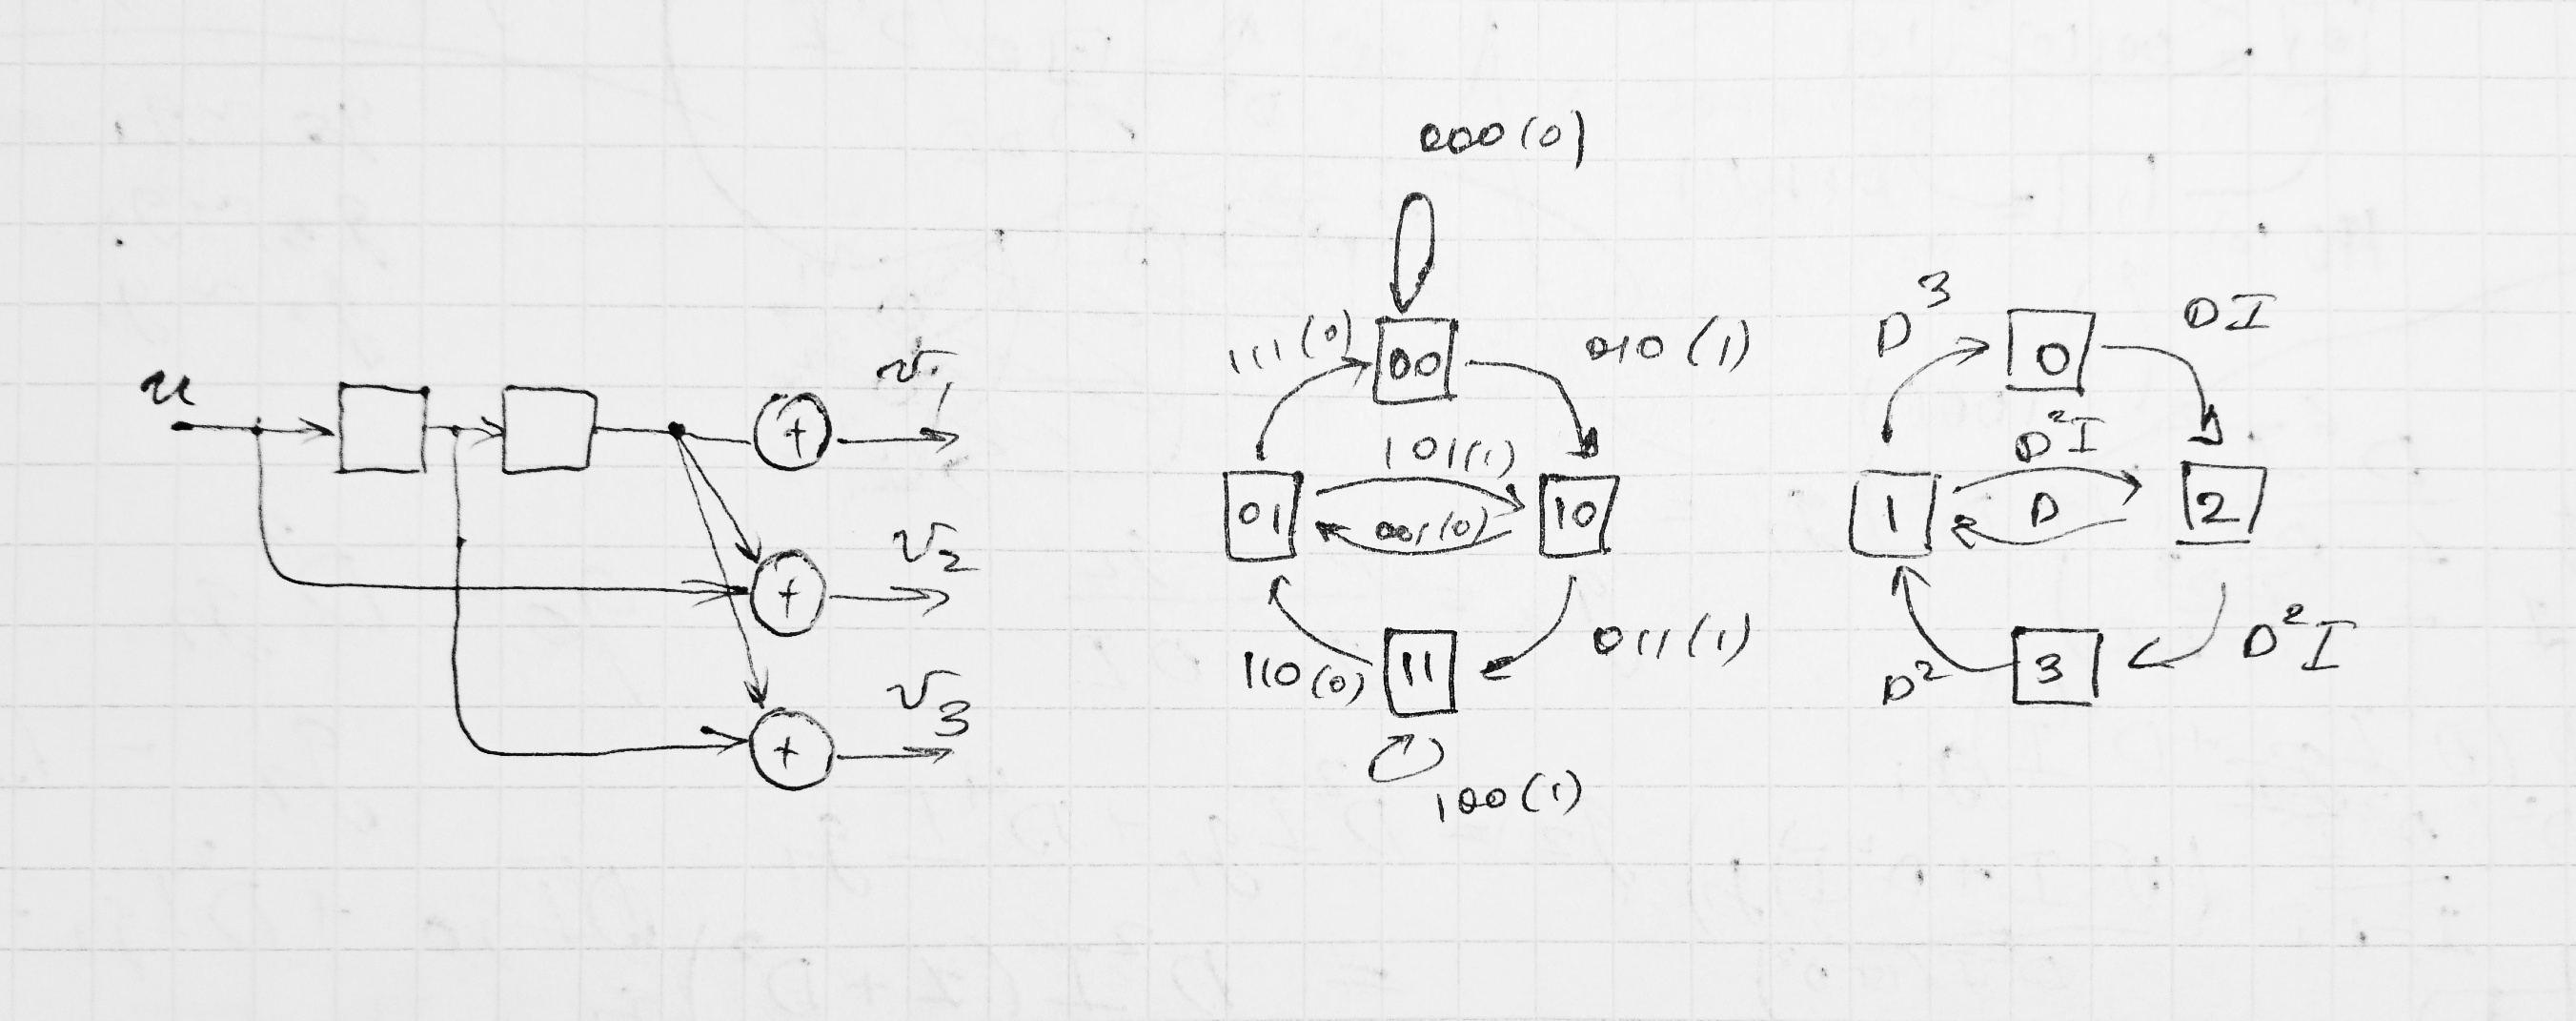 u
+
v₁
+
v₂
+
v₃
000(0)
111(0)
00
010(1)
101(1)
01
10
001(0)
110(0)
11
011(1)
100(1)
D³
0
DI
D²I
1
D
2
D²
3
D²I